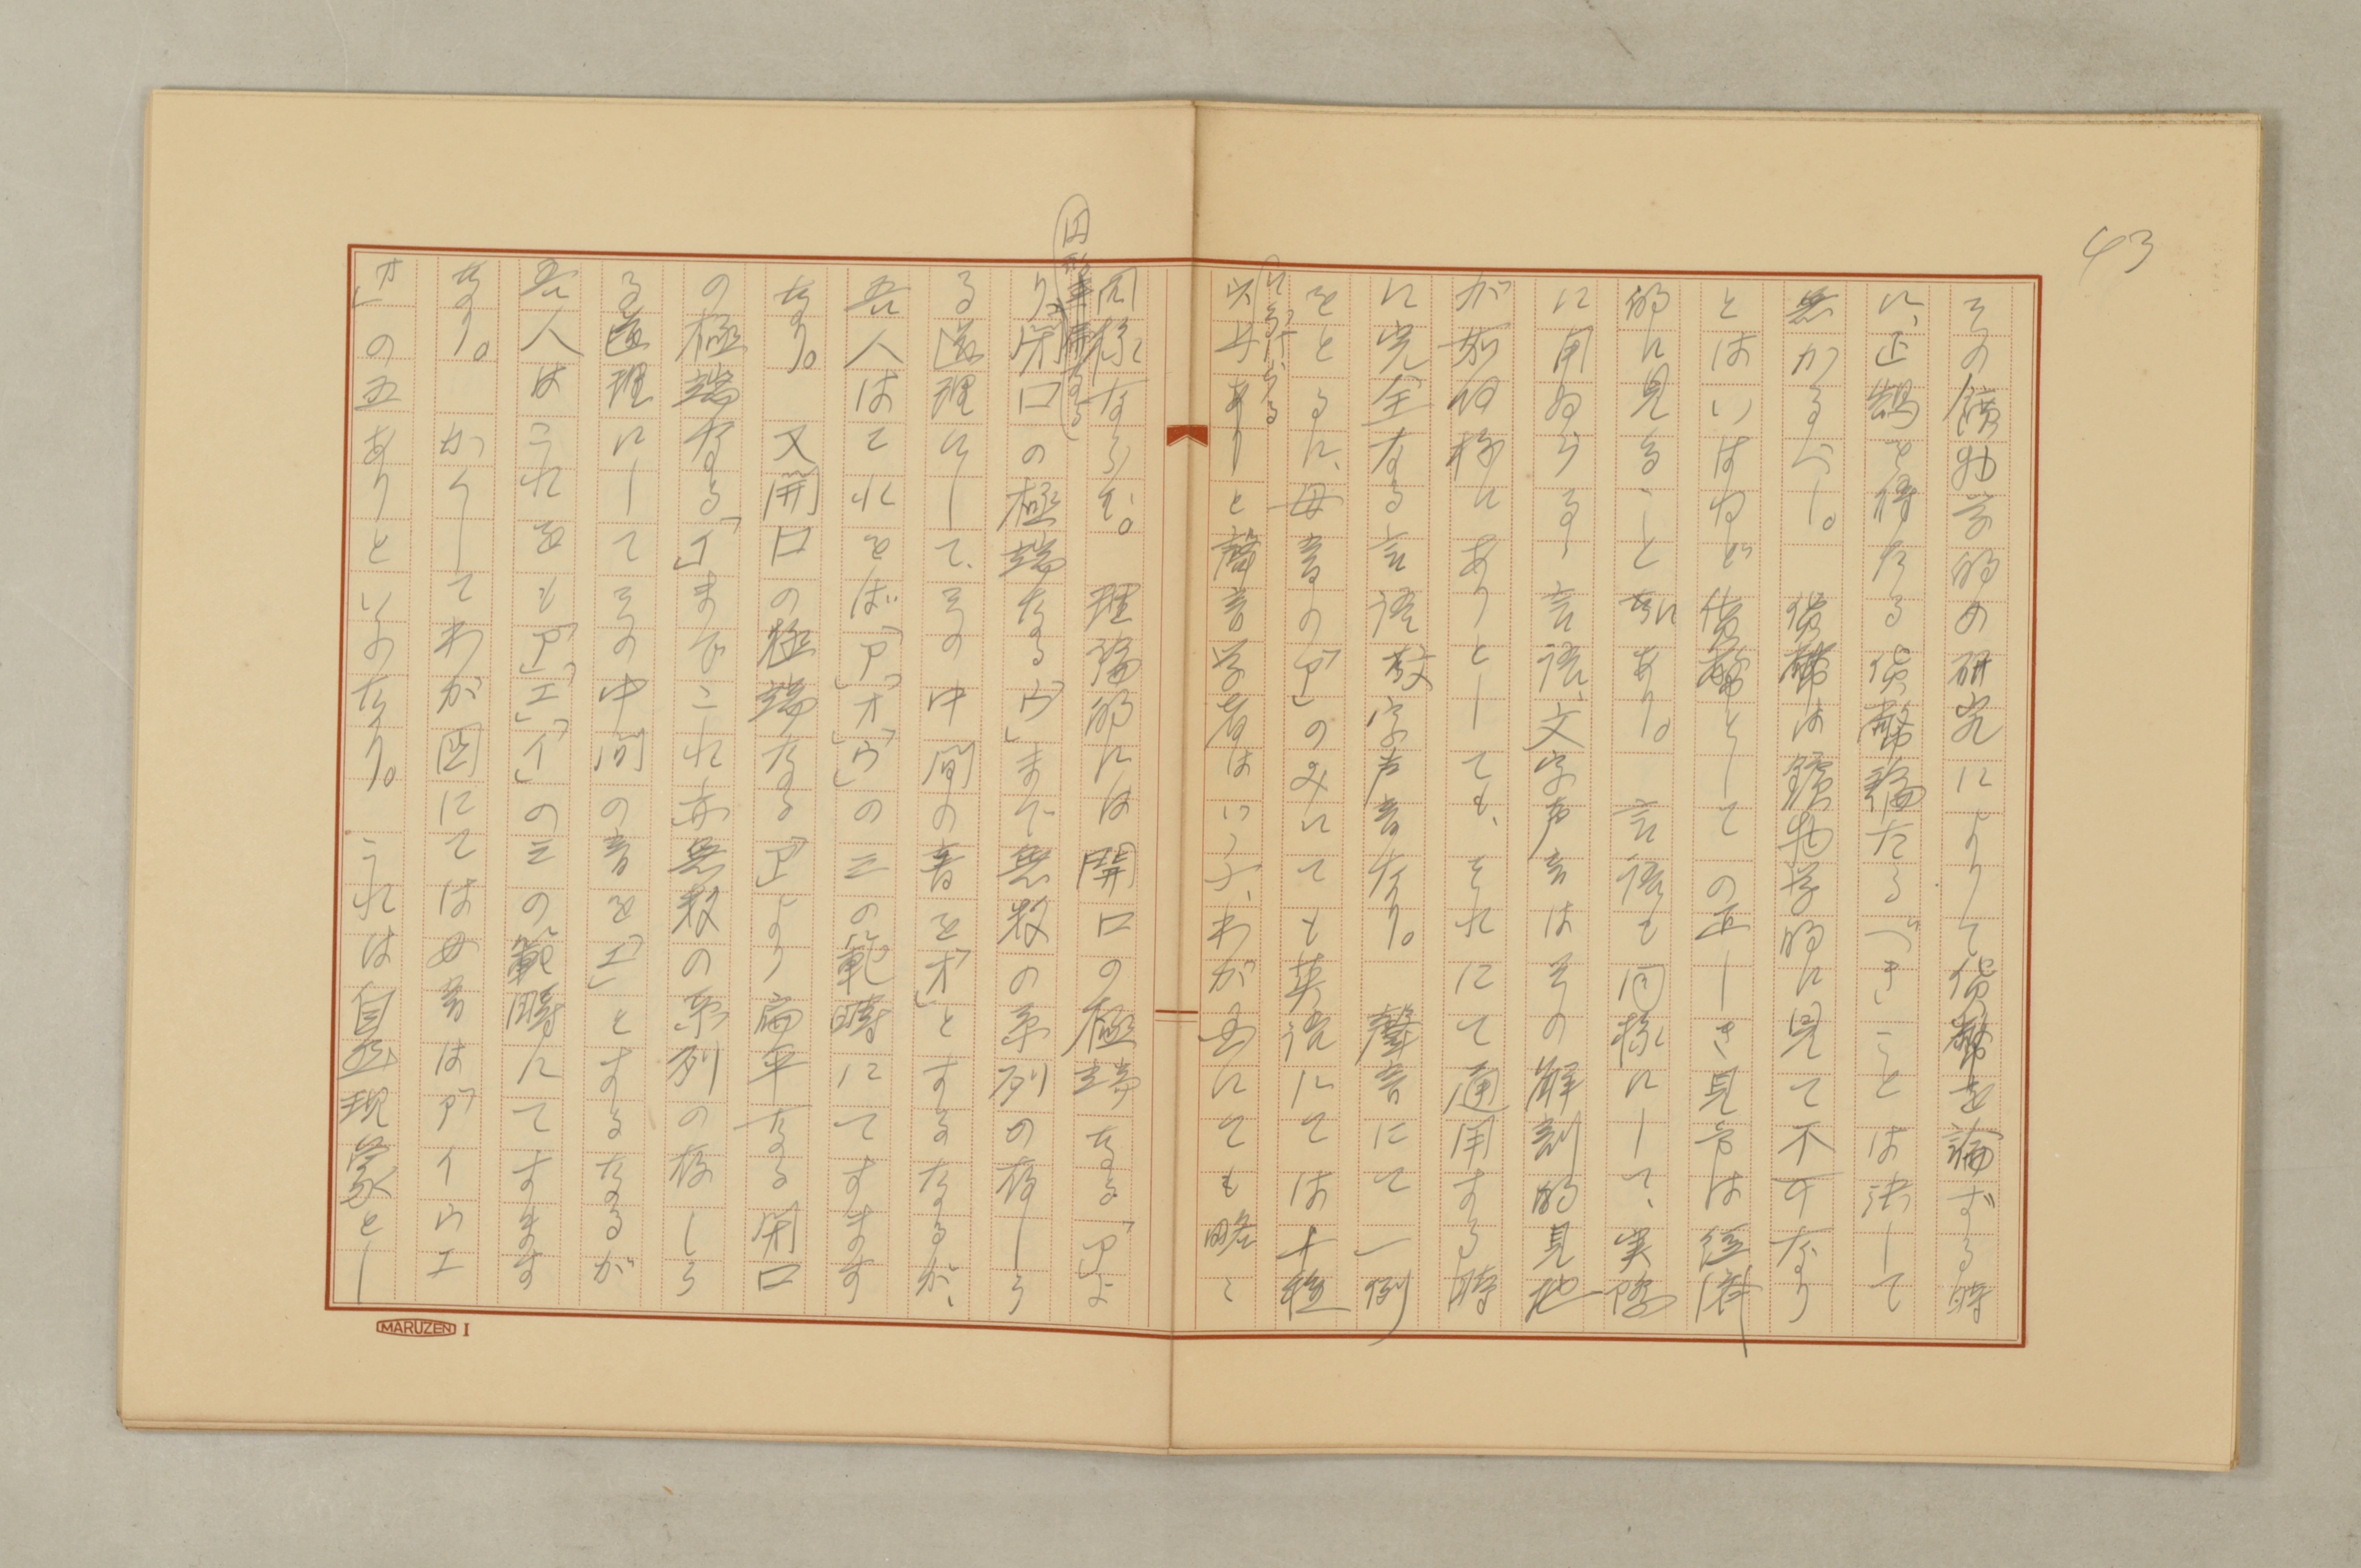 43
その鑛物学的の研究によりて貨幣を論ずる時
に、正鵠を得たる貨幣論たるべきことは決して
無かるべし。貨幣は鑛物学的に見て不可なり
とはいはねど貨幣としての正しき見方は經濟
的に見ることにあり。言語も同様にして、実際
に用ゐらるゝ言語、文字声音はその解剖的見地
が如何様にありとしても、それにて通用する時
に完全なる言語文字声音なり。聲音にて一例
をとるに、母音の「ア」のみにても英語にては十種
以上ありと聲音学者はいふ、わが国にても略々
に分けらるる
同様ならむ。理論的には開口の極端なる「ア」よ
り、閉口の極端なる「ウ」まで無数の系列の存しう
円形
る道理にして、その中間の音を「オ」とするなるが、
吾人はこれをば「ア」「オ」「ウ」の三の範疇にてすます
なり。又開口の極端なる「ア」より扁平なる閉口
の極端なる「イ」までこれ亦無数の系列の存しう
る道理にしてその中間の音を「エ」とするなるが
吾人はこれをも「ア」「エ」「イ」の三の範疇にてすます
なり。かくしてわが国にては母音は「アイウエ
オ」の五ありといふなり。これは自然現象とし
MARUZEN I